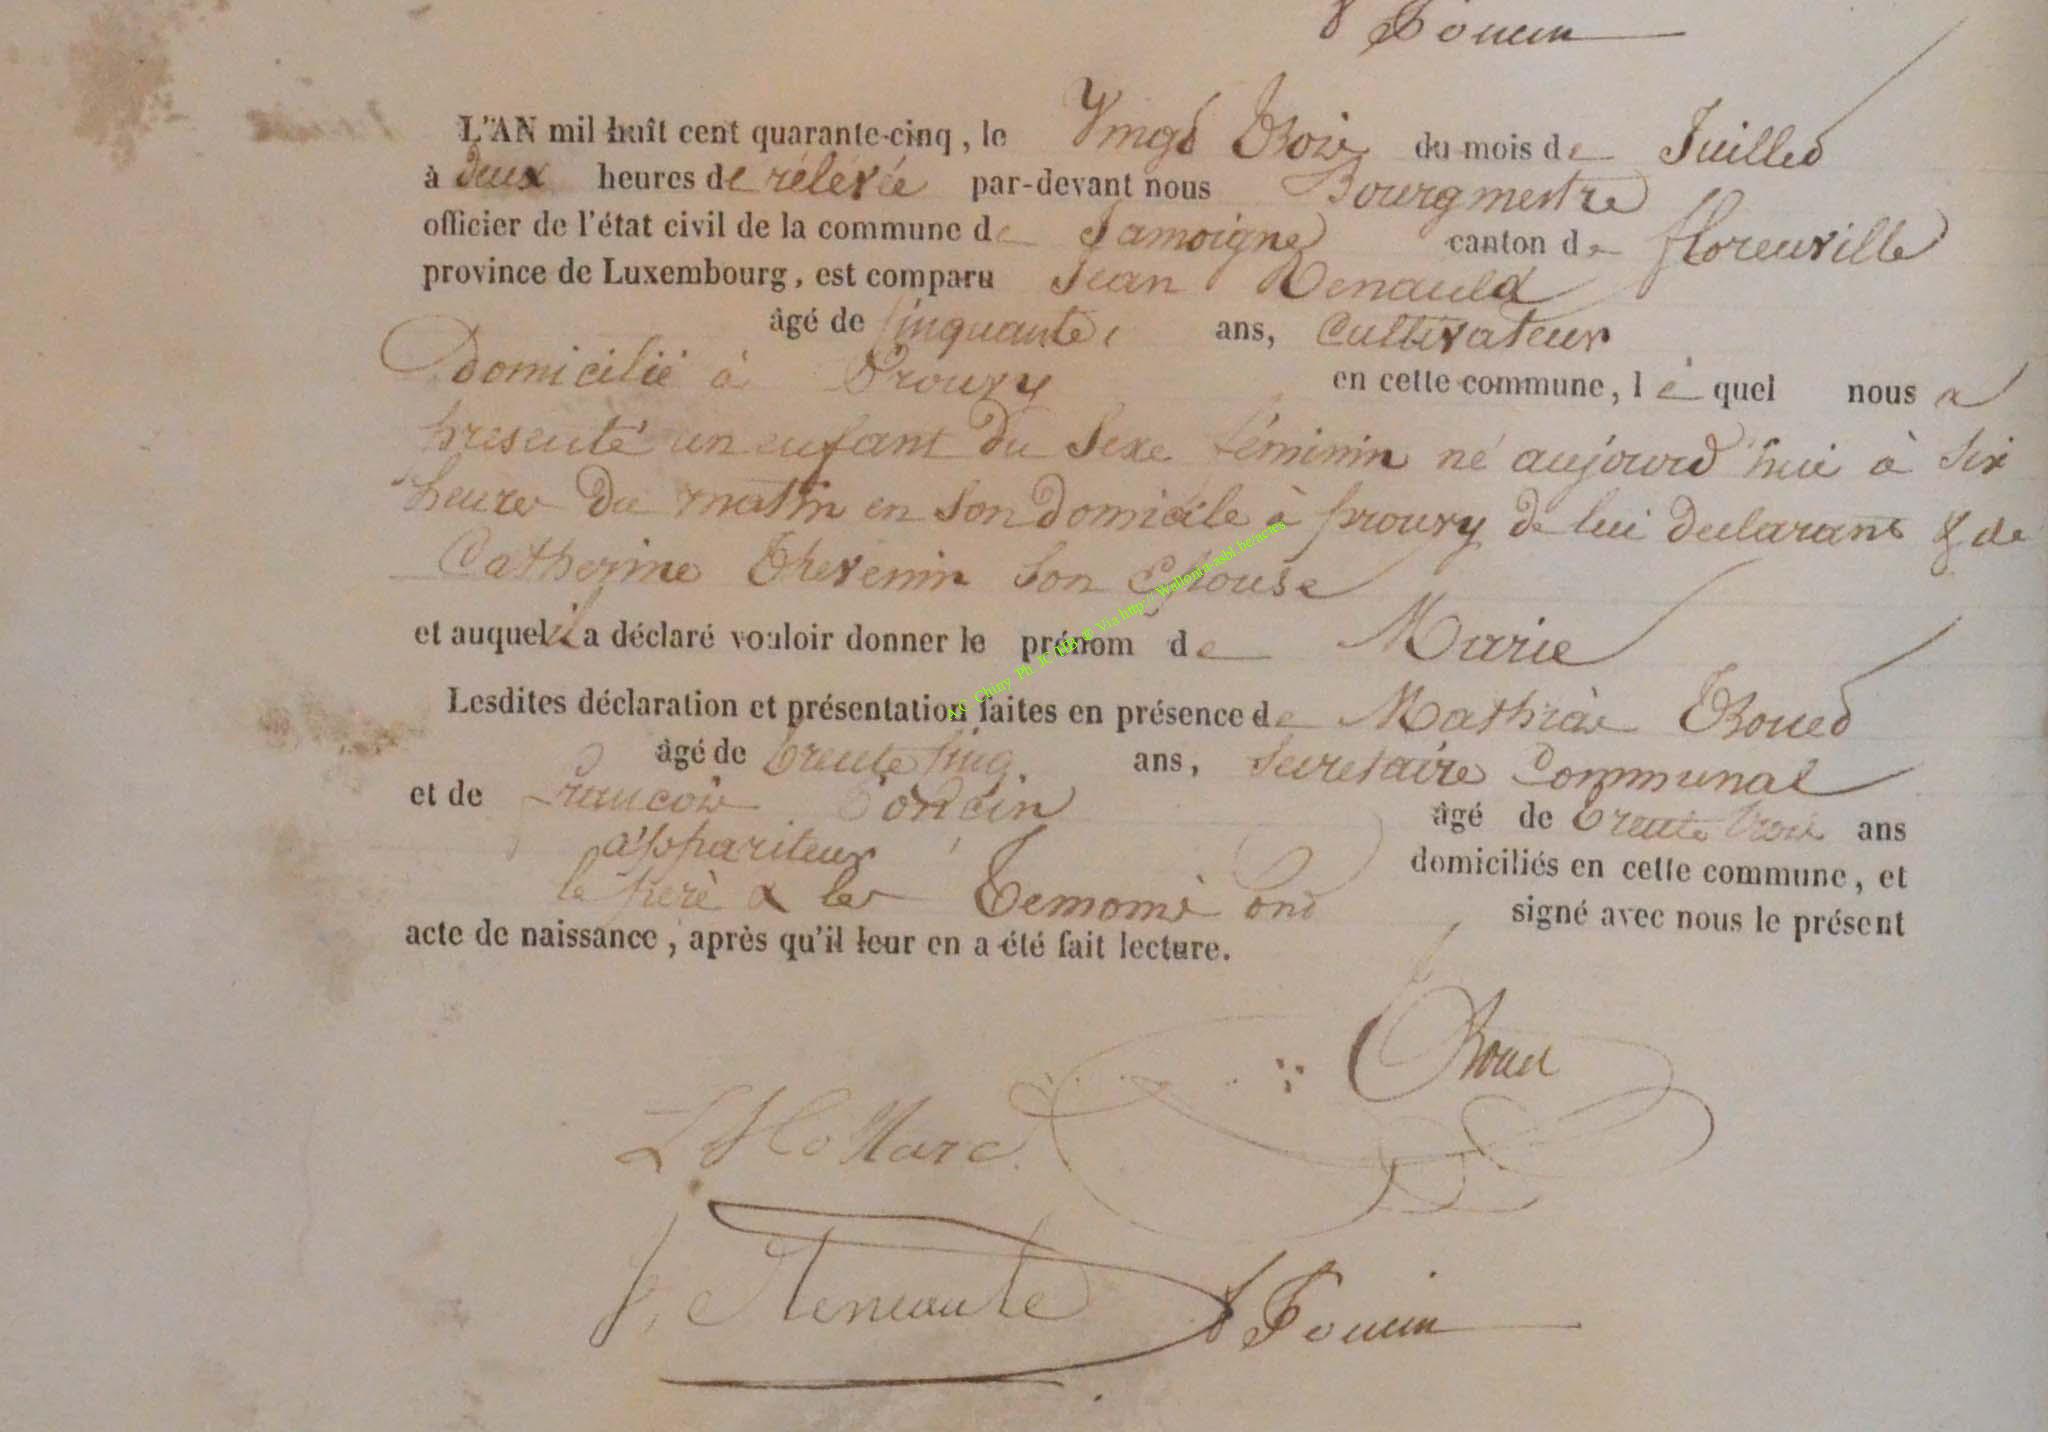 L'AN mil huit cent quarante-cinq, le Vingt Trois du mois de Juillet
à deux heures de rélévée par-devant nous Bourgmestre
officier de l'état civil de la commune de Jamoigne canton de florenville
province de Luxembourg, est comparu Jean Renauld
âgé de Cinquante ans, Cultivateur
domicilié à Prouvy en cette commune, lequel nous a
presenté un enfant du Sexe féminin né aujourd'hui à Six
heures du matin en Son domicile à prouvy de lui declarant & de
Catherine Thevenin Son Epouse
et auquel il a déclaré vouloir donner le prénom de Marie
Lesdites déclaration et présentation faites en présence de Mathias
âgé de trente Cinq ans, Secretaire Communal
et de francois âgé de trente trois ans
appariteur domiciliés en cette commune, et
le pere & les Temoins ont signé avec nous le présent
acte de naissance, après qu'il leur en a été fait lecture.
AC Chiny Ph JC HB © Via http://Wallonia-asbl.be/actes